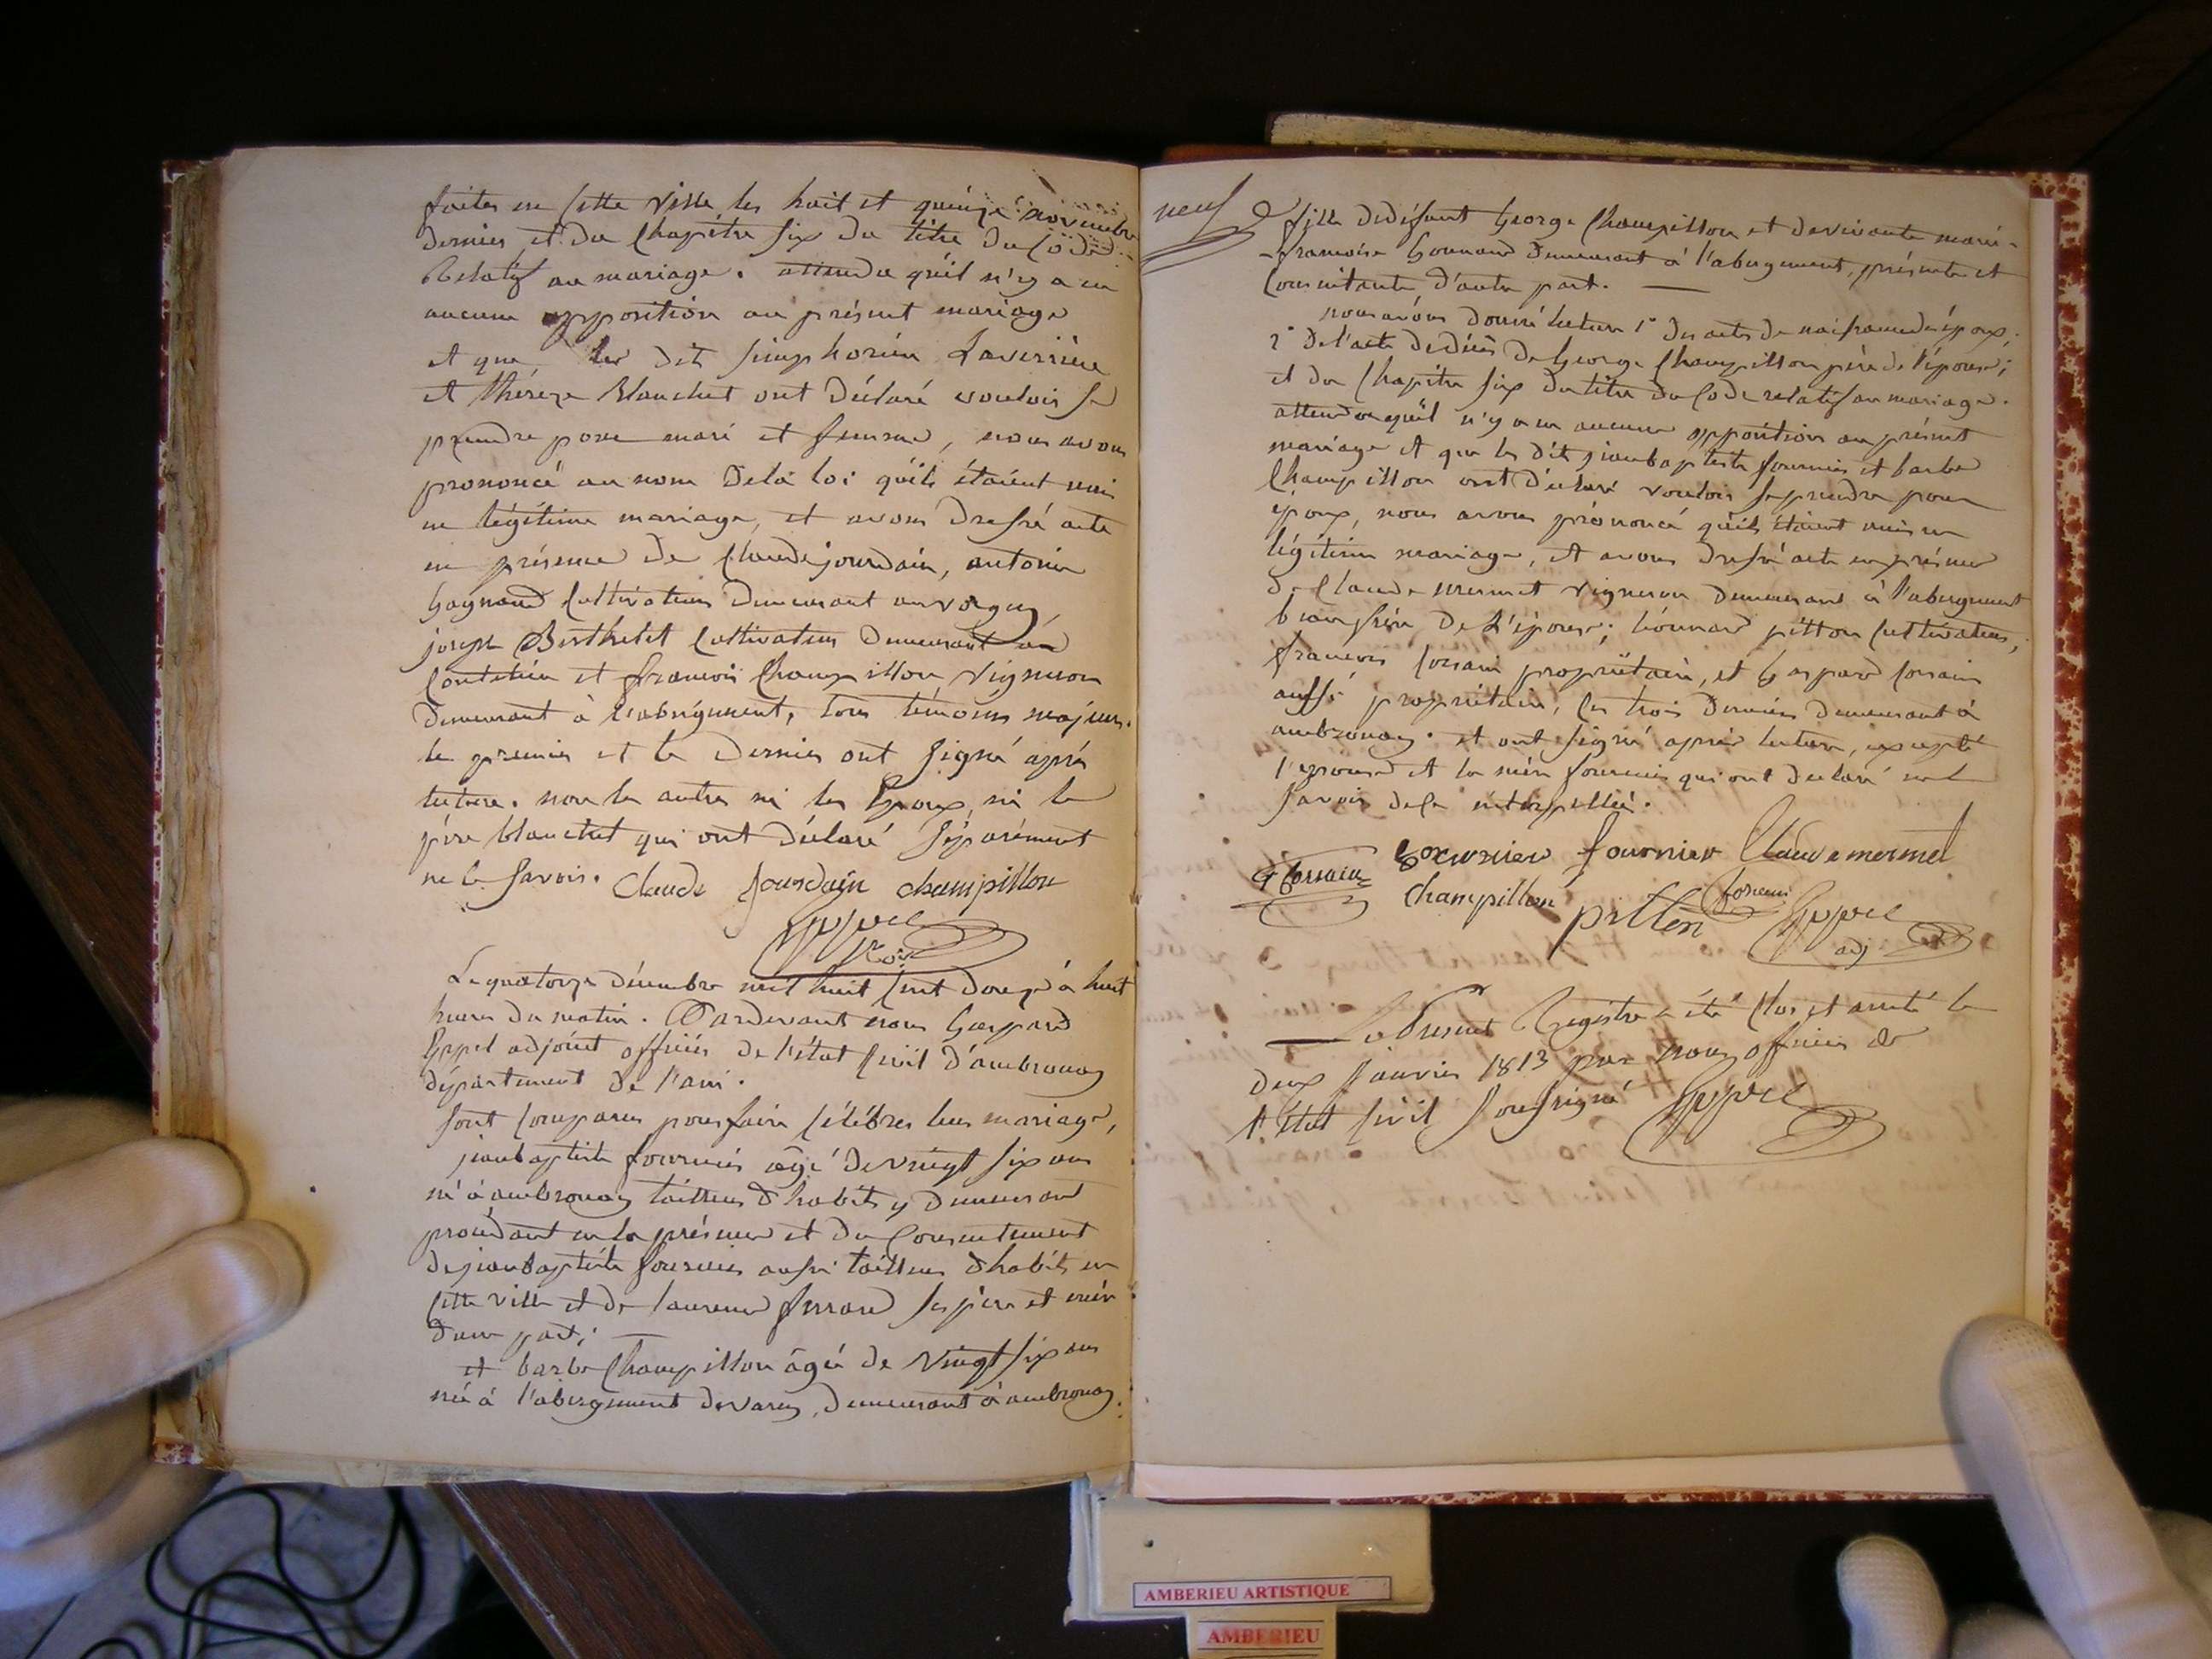 faites en cette ville les huit et quinze novembre
dernier, et du chapitre six du titre du Code
Relatif au mariage. attendu qu'il n'y a eu
aucune opposition au présent mariage
et que les dits simphorien Laverrière
et thérèze Blanchet ont déclaré vouloir se
prendre pour mari et femme, nous avons
prononcé au nom de la loi qu'ils étaient unis
en légitime mariage, et avons dressé acte
en présence de Claude jourdain, antoine
gagnand Cultivateurs demeurant
joseph Berthelet Cultivateur demeurant
et françois Champillon vigneron
demeurant à l'abergement, tous témoins majeurs.
le premier et le dernier ont signé après
lecture. non les autres ni les Epoux, ni le
père blanchet qui ont déclaré séparément
ne le savoir. Claude jourdain champillon
Gippel
Le quatorze décembre mil huit cent douze à huit
heures du matin. Pardevant nous Gaspard
Gippel adjoint officier de l'état civil d'ambronay
département de l'ain.
sont comparus pour faire célébrer leur mariage,
jeanbaptiste fournier âgé de vingt six ans
né à ambronay tailleur d'habits y demeurant
procédant en la présence et du consentement
de jeanbaptiste fournier aussi tailleur d'habits en
cette ville et de laurence ferrand ses père et mère
d'une part;
et barbe Champillon âgée de vingt six ans
née à l'abergement de varey, demeurant à ambronay.
neuf
fille de défunt George Champillon et de vivante marie-
-françoise gounand demeurant à l'abergement, présente et
consentante d'autre part.
nous avons donné lecture 1° des actes de naissance des époux;
2° de l'acte de décès de George Champillon père de l'épouse;
et du Chapitre six du titre du Code relatif au mariage.
attendu qu'il n'y a eu aucune opposition au présent
mariage et que les dits jeanbaptiste fournier et barbe
Champillon ont déclaré vouloir se prendre pour
époux, nous avons prononcé qu'ils étaient unis en
légitime mariage, et avons dressé acte en présence
de Claude mermet vigneron demeurant à l'abergement
beau frère de l'épouse; léonard pitton Cultivateur;
françois corsain propriétaire, et Gaspard corsain
aussi propriétaire, les trois derniers demeurant à
ambronay. et ont signé après lecture, excepté
l'épouse et la mère fournier qui ont déclaré ne le
savoir de ce interpellées.
G Corsain fournier fournier Claude mermet
Champillon pitton Corsain Gippel
adj
Le Present Registre a été Clos et arrêté le
deux janvier 1813 par nous officier de
l'état civil soussigné Gippel
AMBERIEU ARTISTIQUE
AMBERIEU